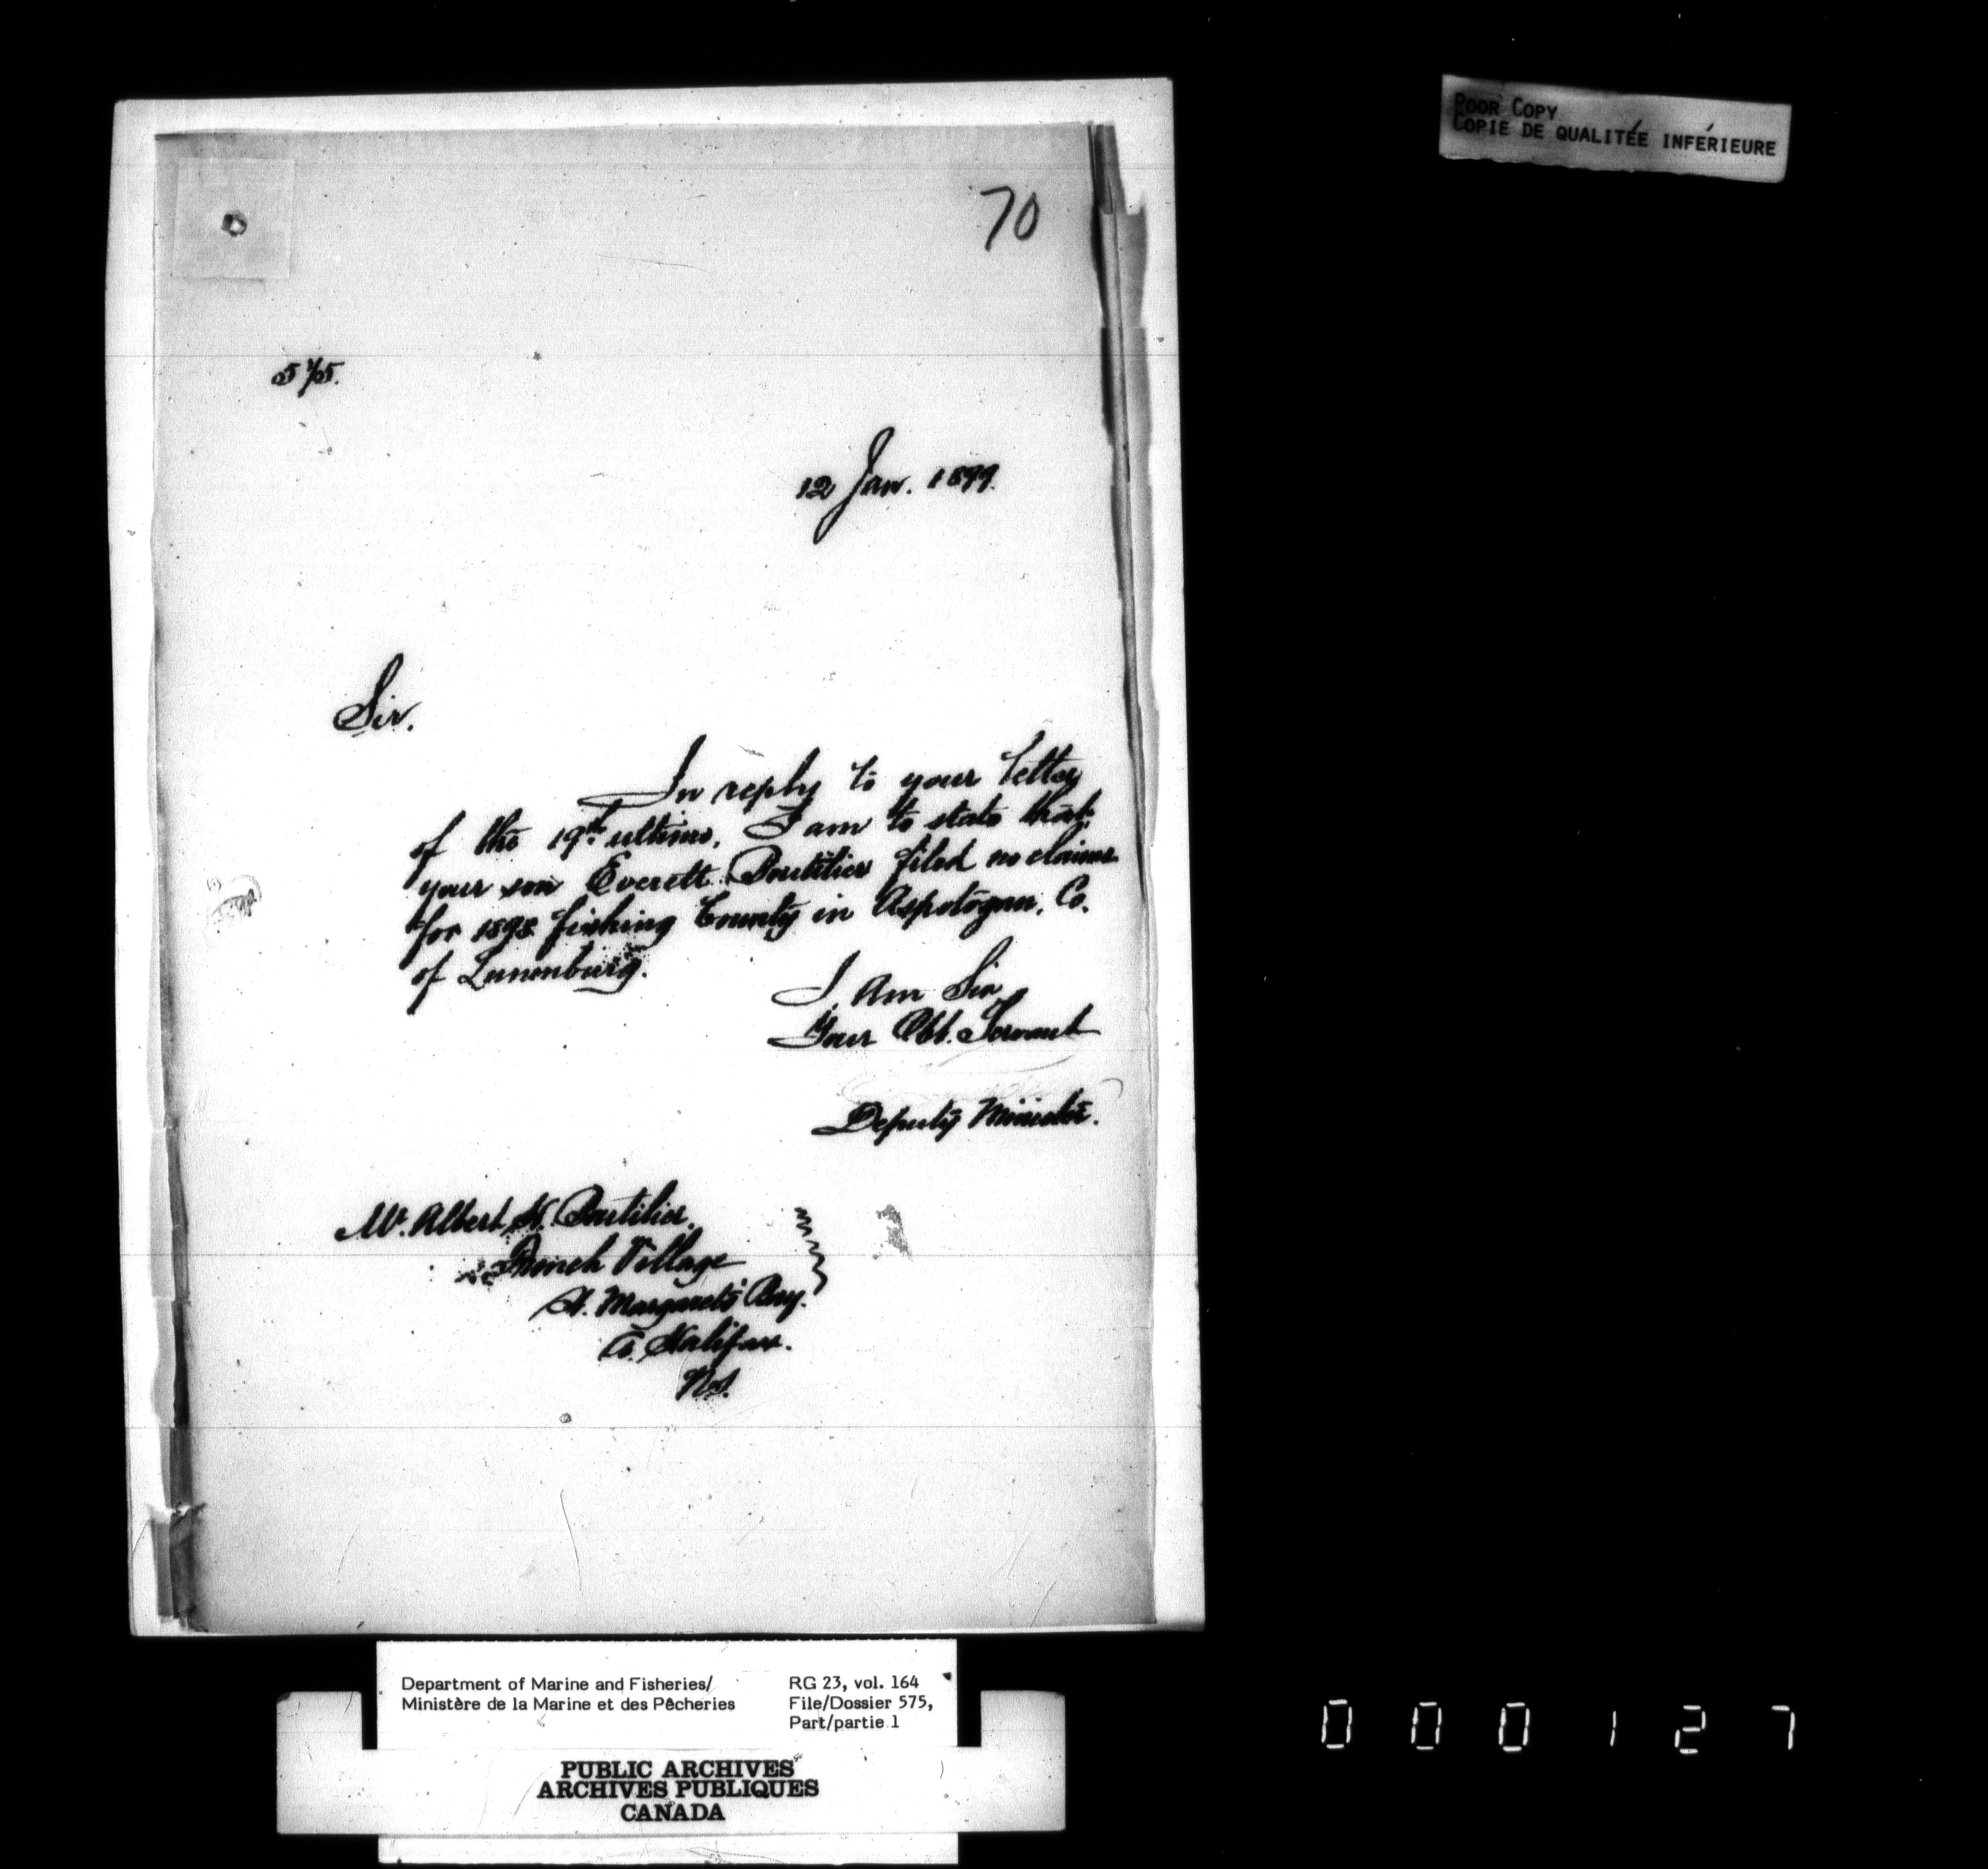 POOR COPY
COPIE DE QUALITÉE INFÉRIEURE
70
575.
12 Jan. 1899.
Sir.
In reply to your letter
of the 19th ultimo, I am to state that
your son Everett Boutilier filed no claims
for 1898 fishing bounty in Aspotogan, Co.
of Lunenburg.
I Am Sir
Your Obt. Servant
Deputy Minister.
Mr. Albert N. Boutilier.
French Village
St. Margarets Bay.
Co. Halifax.
N.S.
Department of Marine and Fisheries/
Ministère de la Marine et des Pêcheries
RG 23, vol. 164
File/Dossier 575,
Part/partie 1
PUBLIC ARCHIVES
ARCHIVES PUBLIQUES
CANADA
000127